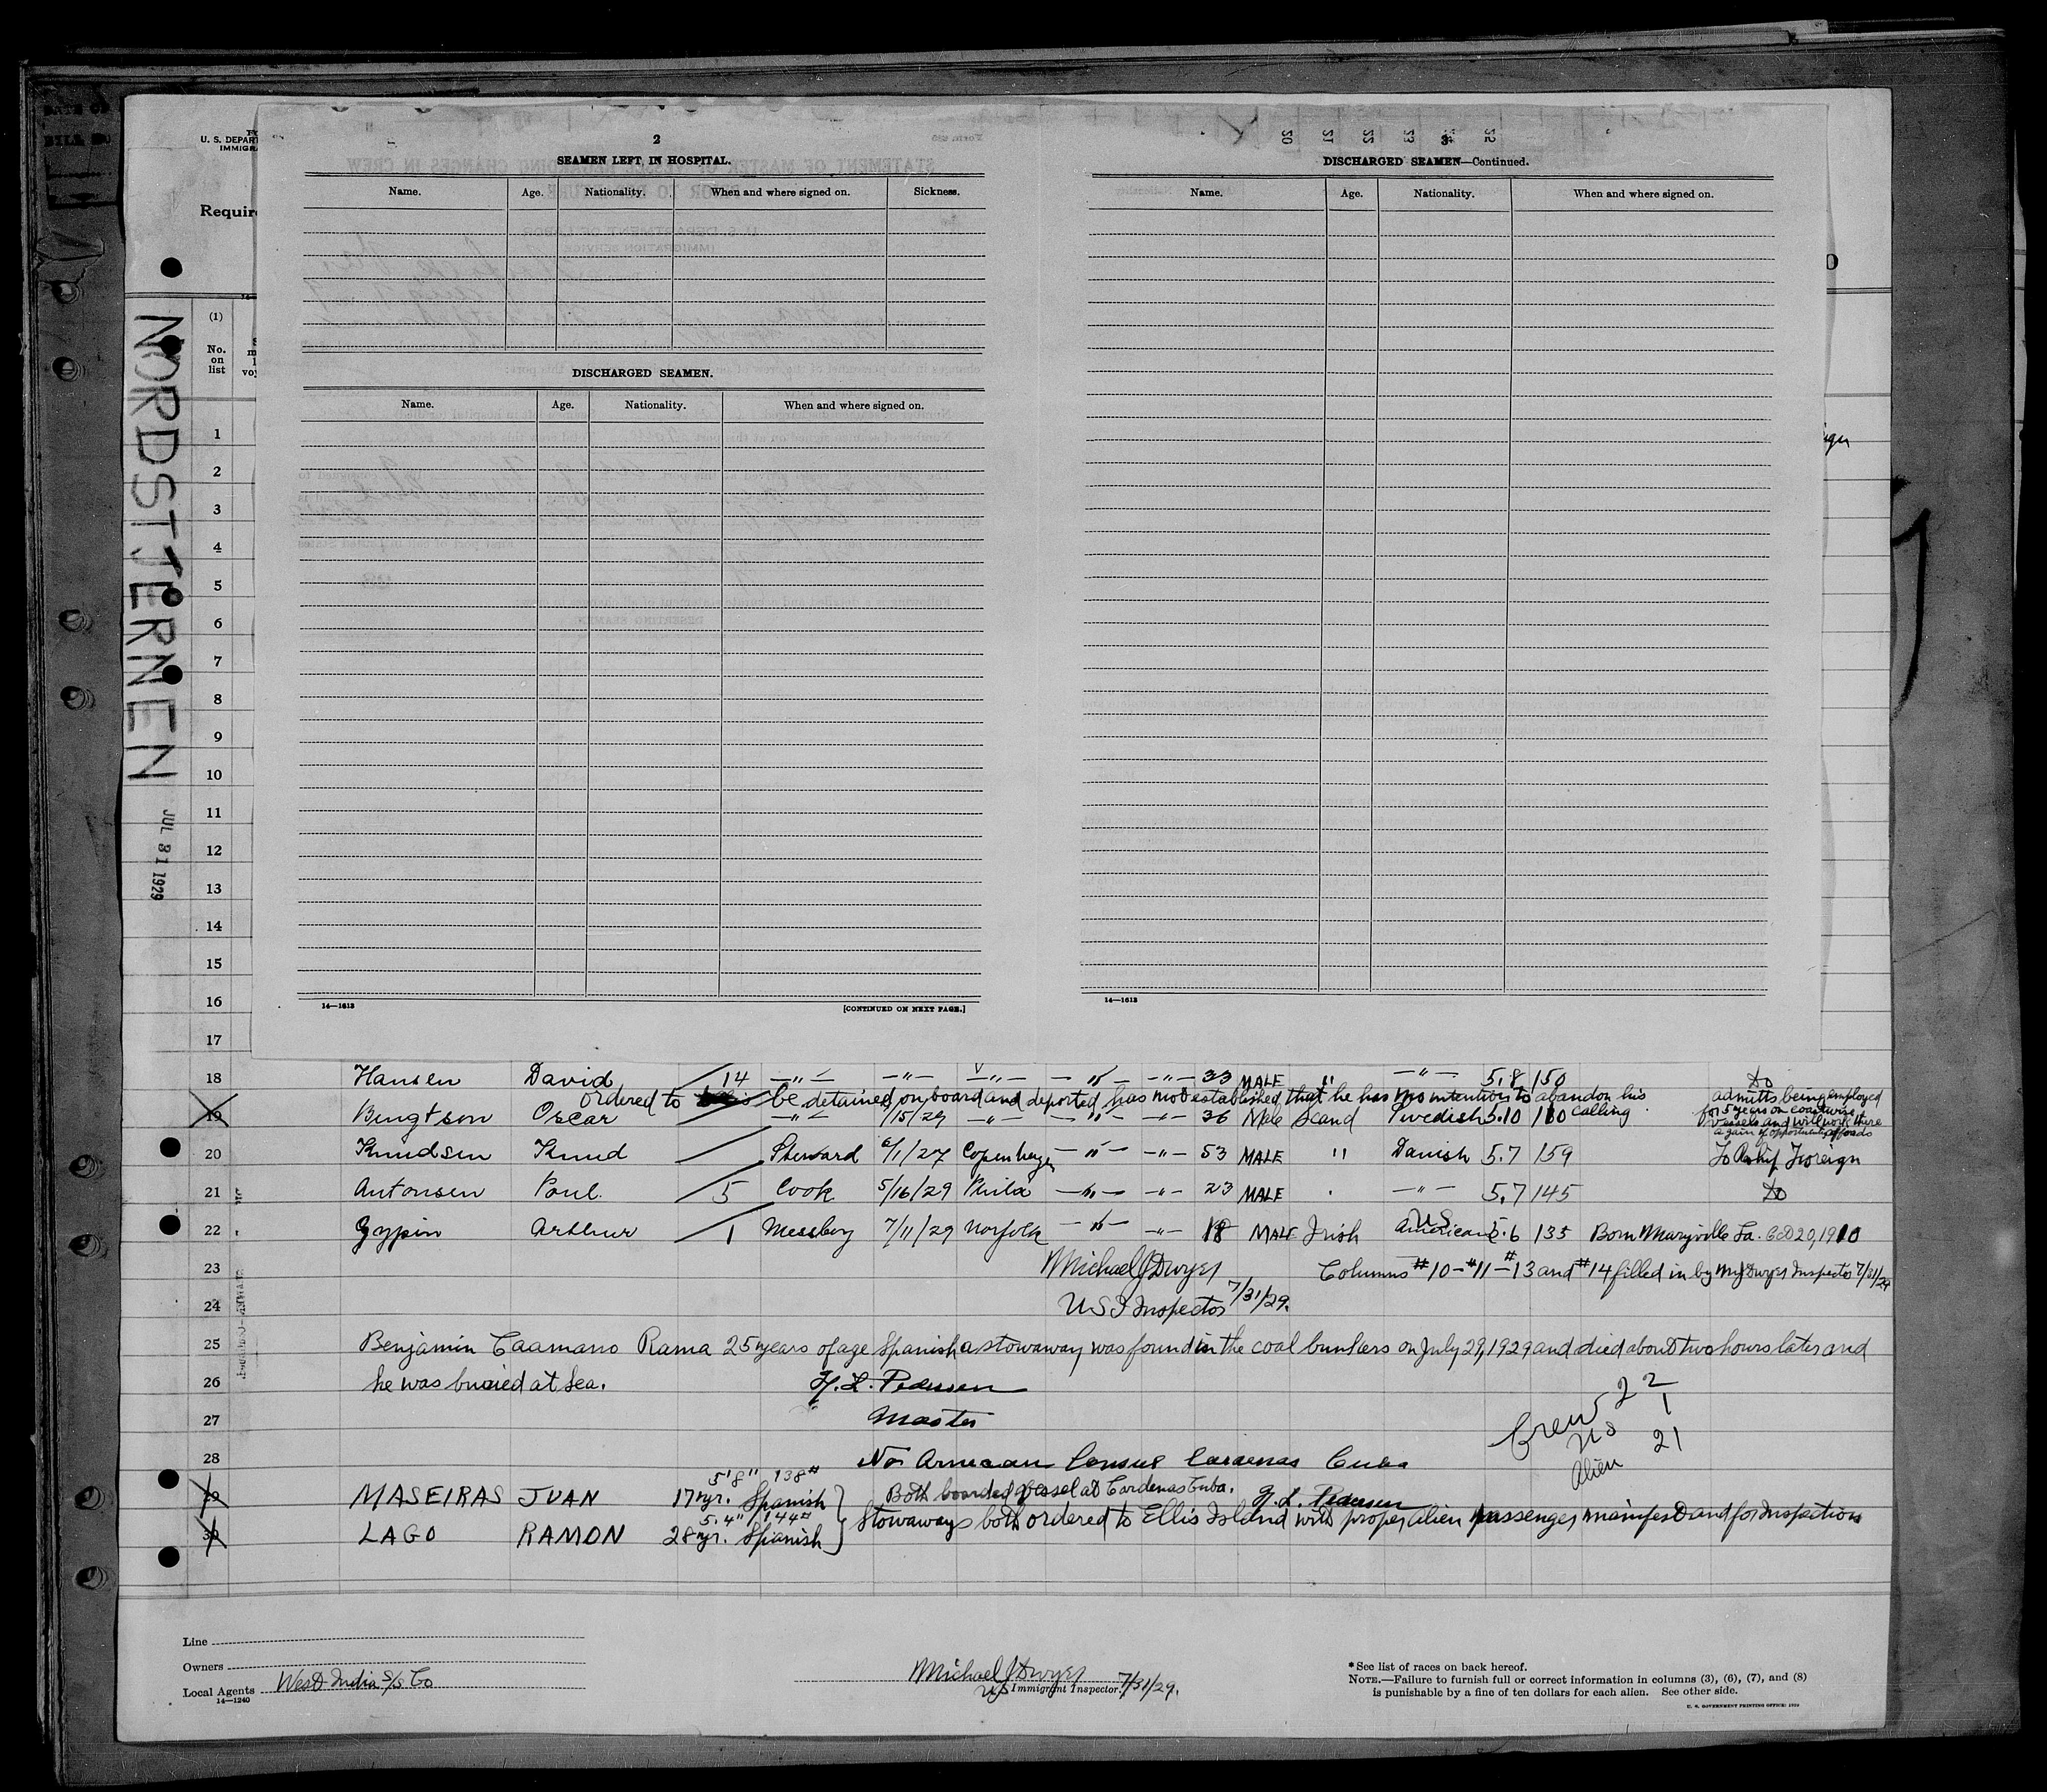 NORDSTJERNEN
JUL 31 1929
U. S. DEPART
IMMIGRA
Require
(1)
No.
on
list
2
SEAMEN LEFT IN HOSPITAL.
Name. Age. Nationality. When and where signed on. Sickness.
DISCHARGED SEAMEN.
Name. Age. Nationality. When and where signed on.
14—1613 [CONTINUED ON NEXT PAGE.]
3
DISCHARGED SEAMEN—Continued.
Name. Age. Nationality. When and where signed on.
14—1613
1
2
3
4
5
6
7
8
9
10
11
12
13
14
15
16
17
18 Hansen David 14 —"— —"— —"— —"— —"— 33 MALE " —"— 5.8 150 do
ordered to be detained on board and deported, has not established that he has no intention to abandon his calling
19 Bengtson Oscar —"— /15/29 —"— —"— —"— 36 Male Scand Swedish 5.10 180
admitts being employed
for 5 years on coastwise
vessels and will work there
again if opportunity affords
20 Knudsen Knud Steward 6/1/27 Copenhagen —"— —"— 53 MALE " Danish 5.7 159 To Reship Foreign
21 Antonsen Poul 5 Cook 5/16/29 Phila —"— —"— 23 MALE —"— 5.7 145 do
22 Arthur 1 Messboy 7/11/29 Norfolk —"— —"— 18 MALE Irish US American 5.6 135 Born Maryville La. Oct 20, 1910
23 Michael J Dwyer Columns #10-#11-#13 and #14 filled in by M J Dwyer Inspector 7/31/29
24 US I Inspector 7/31/29.
25 Benjamin Caamano Rama 25 years of age Spanish a stowaway was found in the coal bunkers on July 29, 1929 and died about two hours later and
26 he was buried at sea. H. L. Pedersen
27 Master
Crew 22
US 1
Alien 21
28 No American Consul Cardenas Cuba
5'8" 138#
29 MASEIRAS JUAN 17 yr. Spanish } Both boarded vessel at Cardenas Cuba. H. L. Pedersen
5.4" 144#
30 LAGO RAMON 28 yr. Spanish } Stowaways both ordered to Ellis Island with proper alien passenger manifest and for Inspection
Line
Owners
Local Agents West India S/S Co
14—1240
Michael J Dwyer 7/31/29.
US Immigrant Inspector.
* See list of races on back hereof.
NOTE.—Failure to furnish full or correct information in columns (3), (6), (7), and (8)
is punishable by a fine of ten dollars for each alien. See other side.
U. S. GOVERNMENT PRINTING OFFICE: 1929